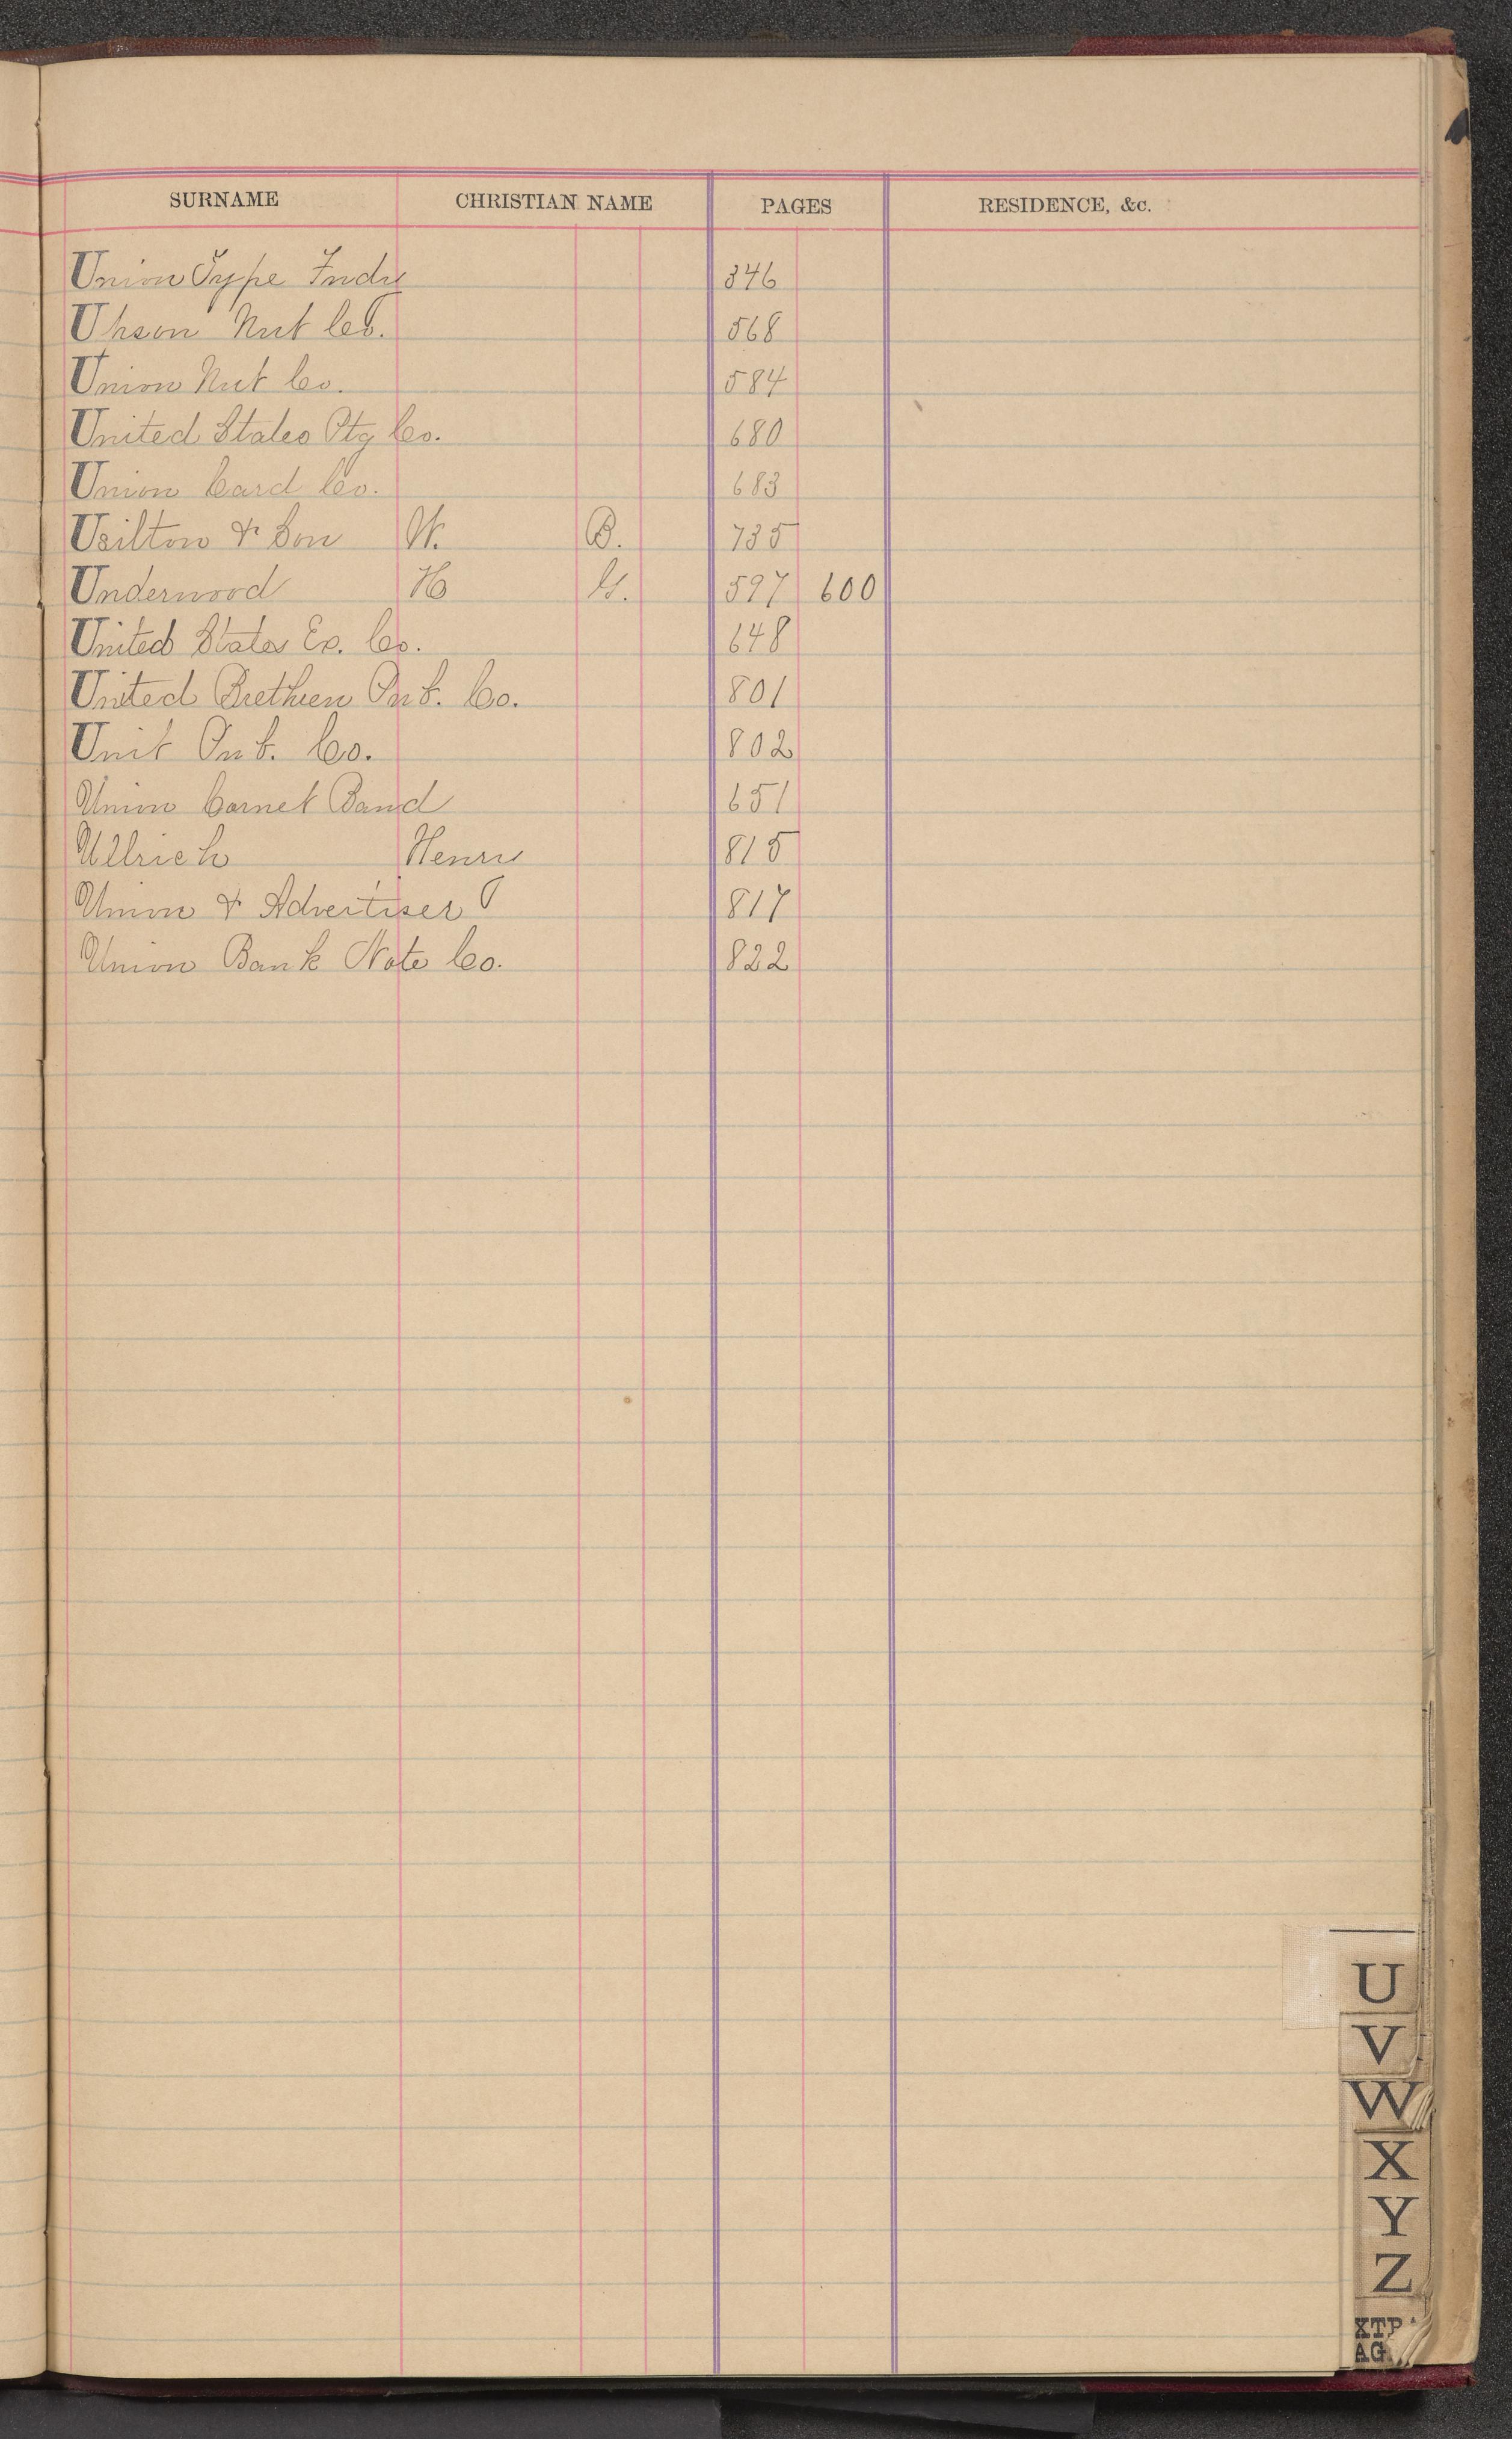 SURNAME CHRISTIAN NAME PAGES RESIDENCE, &c.
Union Type Fndry 346
Upson Nut Co. 568
Union Nut Co. 584
United States Ptg Co. 680
Union Card Co. 683
Usilton & Son W. B. 735
Underwood H G. 597 600
United States Ex. Co. 648
United Brethren Pub. Co. 801
Unit Pub. Co. 802
Union Cornet Band 651
Ullrich Henry 815
Union & Advertiser 817
Union Bank Note Co. 822
U
V
W
X
Y
Z
XTP
AG